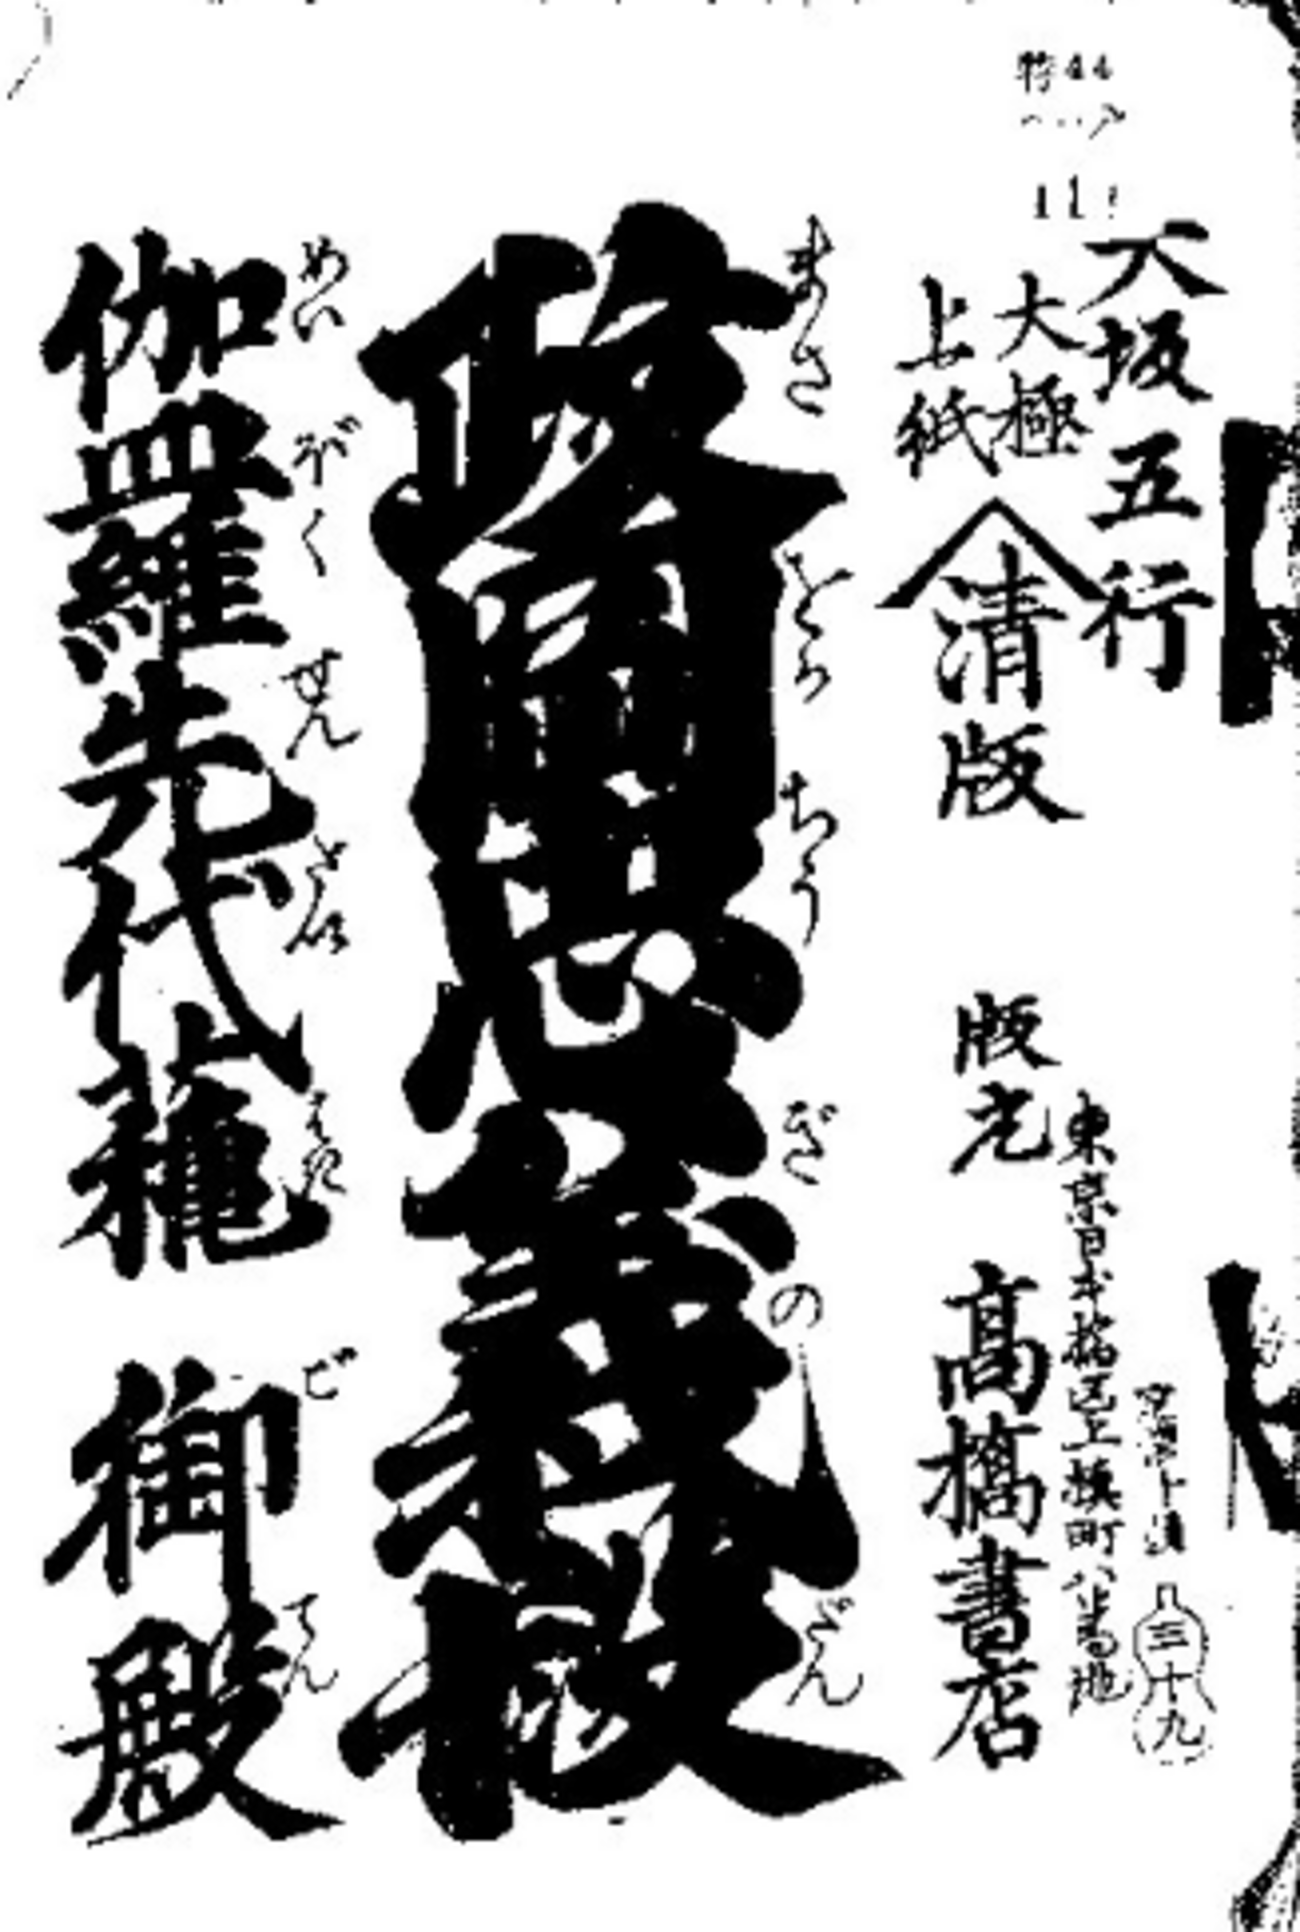 特44
大坂五行
大極
上紙
清版
版元
東京日本橋区上槇町八番地
三十九
高橋書店
まさをかちうぎのだん
政岡忠義段
めいぼくせんだいはぎ
伽羅先代萩
ごてん
御殿